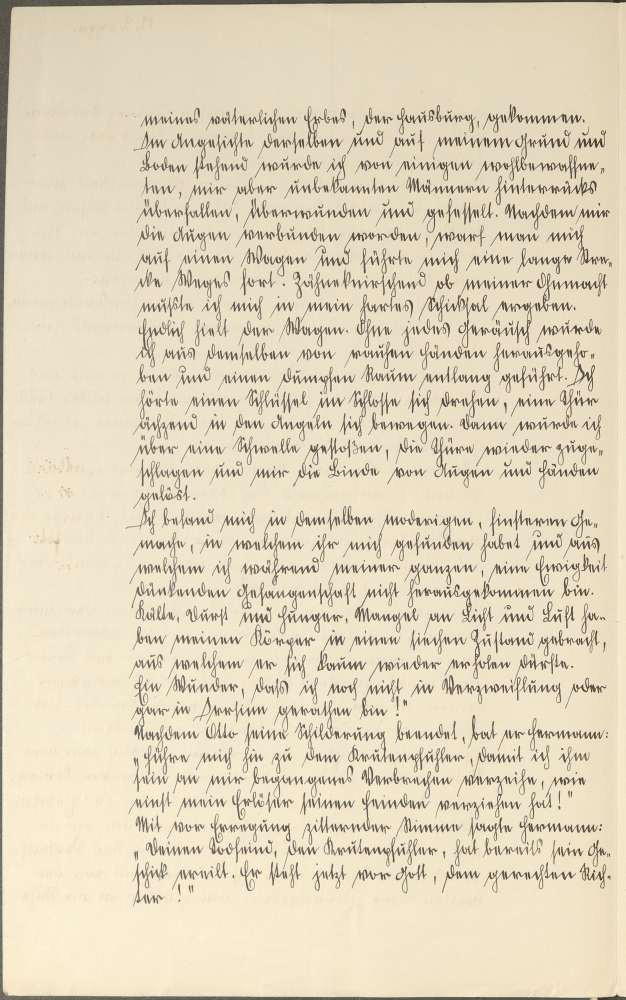 meines väterlichen Erbes, der Hausburg, gekommen.
Im Angesichte derselben und auf meinem Grund und
Boden stehend wurde ich von einigen wohlbewaffne-
ten, mir aber unbekannten Männern hinterrücks
überfallen, überwunden und gefesselt. Nachdem mir
die Augen verbunden worden, warf man mich
auf einen Wagen und führte mich eine lange Stre-
cke Weges fort. Zähneknirschend ob meiner Ohnmacht
mußte ich mich in mein hartes Schicksal ergeben.
Endlich hielt der Wagen. Ohne jedes Geräusch wurde
ich aus demselben von rauhen Händen herausgeho-
ben und einen dumpfen Raum entlang geführt. Ich
hörte einen Schlüssel im Schlosse sich drehen, eine Thür
ächzend in den Angeln sich bewegen. Dann wurde ich
über eine Schwelle gestoßen, die Thüre wieder zuge-
schlagen und mir die Binde von Augen und Händen
gelöst.
Ich befand mich in demselben moderigen, finsteren Ge-
mache, in welchem ihr mich gefunden habet und aus
welchem ich während meiner ganzen, eine Ewigkeit
dünkenden Gefangenschaft nicht herausgekommen bin.
Kälte, Durst und Hunger, Mangel an Licht und Luft ha-
ben meinen Körper in einen siechen Zustand gebracht,
aus welchem er sich kaum wieder erholen dürfte.
Ein Wunder, daß ich noch nicht in Verzweiflung oder
gar in Irrsinn gerathen bin!"
Nachdem Otto seine Schilderung beendet, bat er Hermann:
„Führe mich hin zu dem Krutenpfuhler, damit ich ihm
sein an mir begangenes Verbrechen verzeihe, wie
einst mein Erlöser seinen Feinden verziehen hat!"
Mit vor Erregung zitternder Stimme sagte Hermann:
„Deinen Todfeind, den Krutenpfuhler, hat bereits sein Ge-
schick ereilt. Er steht jetzt vor Gott, dem gerechten Rich-
ter!"